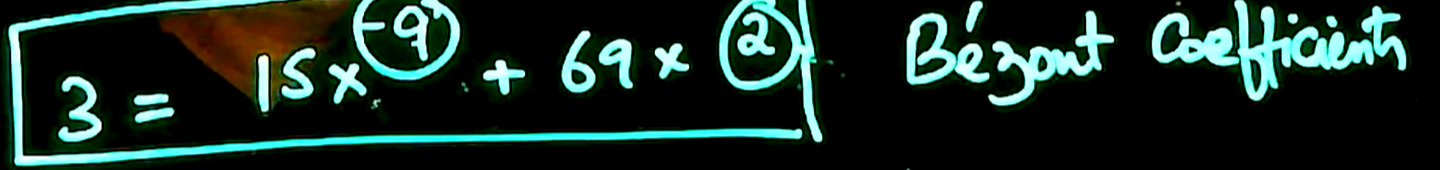 3 = 15 × -9 + 69 × 2 Bézout Coefficients